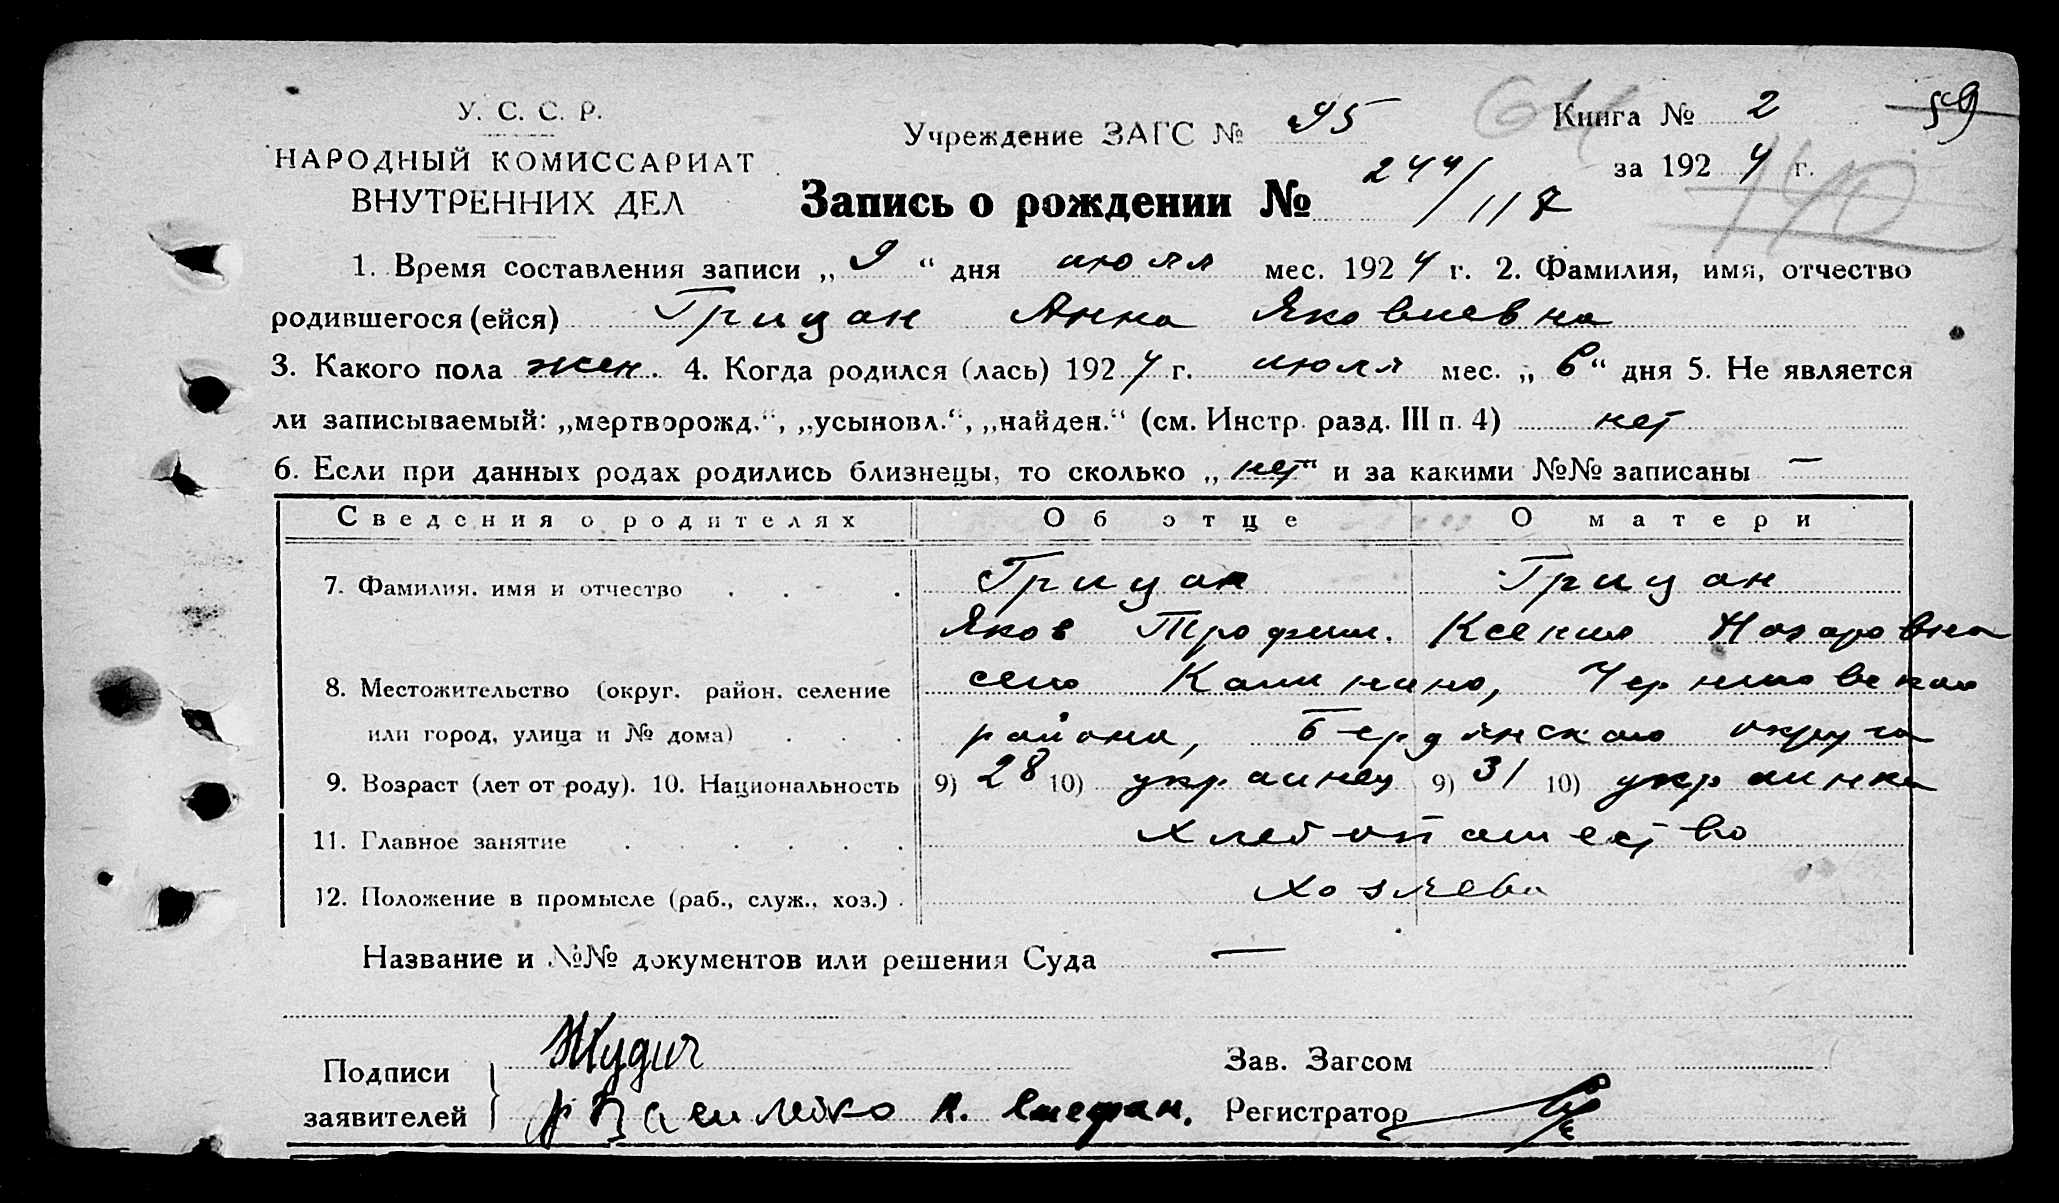 У. С. С. Р.
НАРОДНЫЙ КОМИССАРИАТ
ВНУТРЕННИХ ДЕЛ
Учреждение ЗАГС № 95
Книга № 2
59
за 1924 г.
140
Запись о рождении № 244/117
1. Время составления записи „ 9 “ дня июля мес. 1924 г. 2. Фамилия, имя, отчество
родившегося (ейся) Грицан Анна Яковлевна
3. Какого пола жен. 4. Когда родился (лась) 1924 г. июля мес. „ 6 “ дня 5. Не является
ли записываемый: „мертворожд.“, „усыновл.“, „найден.“ (см. Инстр. разд. III п. 4) нет
6. Если при данных родах родились близнецы, то сколько „ нет “ и за какими №№ записаны —
Сведения о родителях Об отце О матери
7. Фамилия, имя и отчество Грицан Грицан
Яков Трофим. Ксения Назаровна
8. Местожительство (округ, район, селение село Калинино, Черниговского
или город, улица и № дома) района, Бердянского округа
9. Возраст (лет от роду). 10. Национальность 9) 28 10) украинец 9) 31 10) украинка
11. Главное занятие хлебопашество
12. Положение в промысле (раб., служ., хоз.) хозяева
Название и №№ документов или решения Суда —
Подписи
заявителей
Зав. Загсом
Регистратор